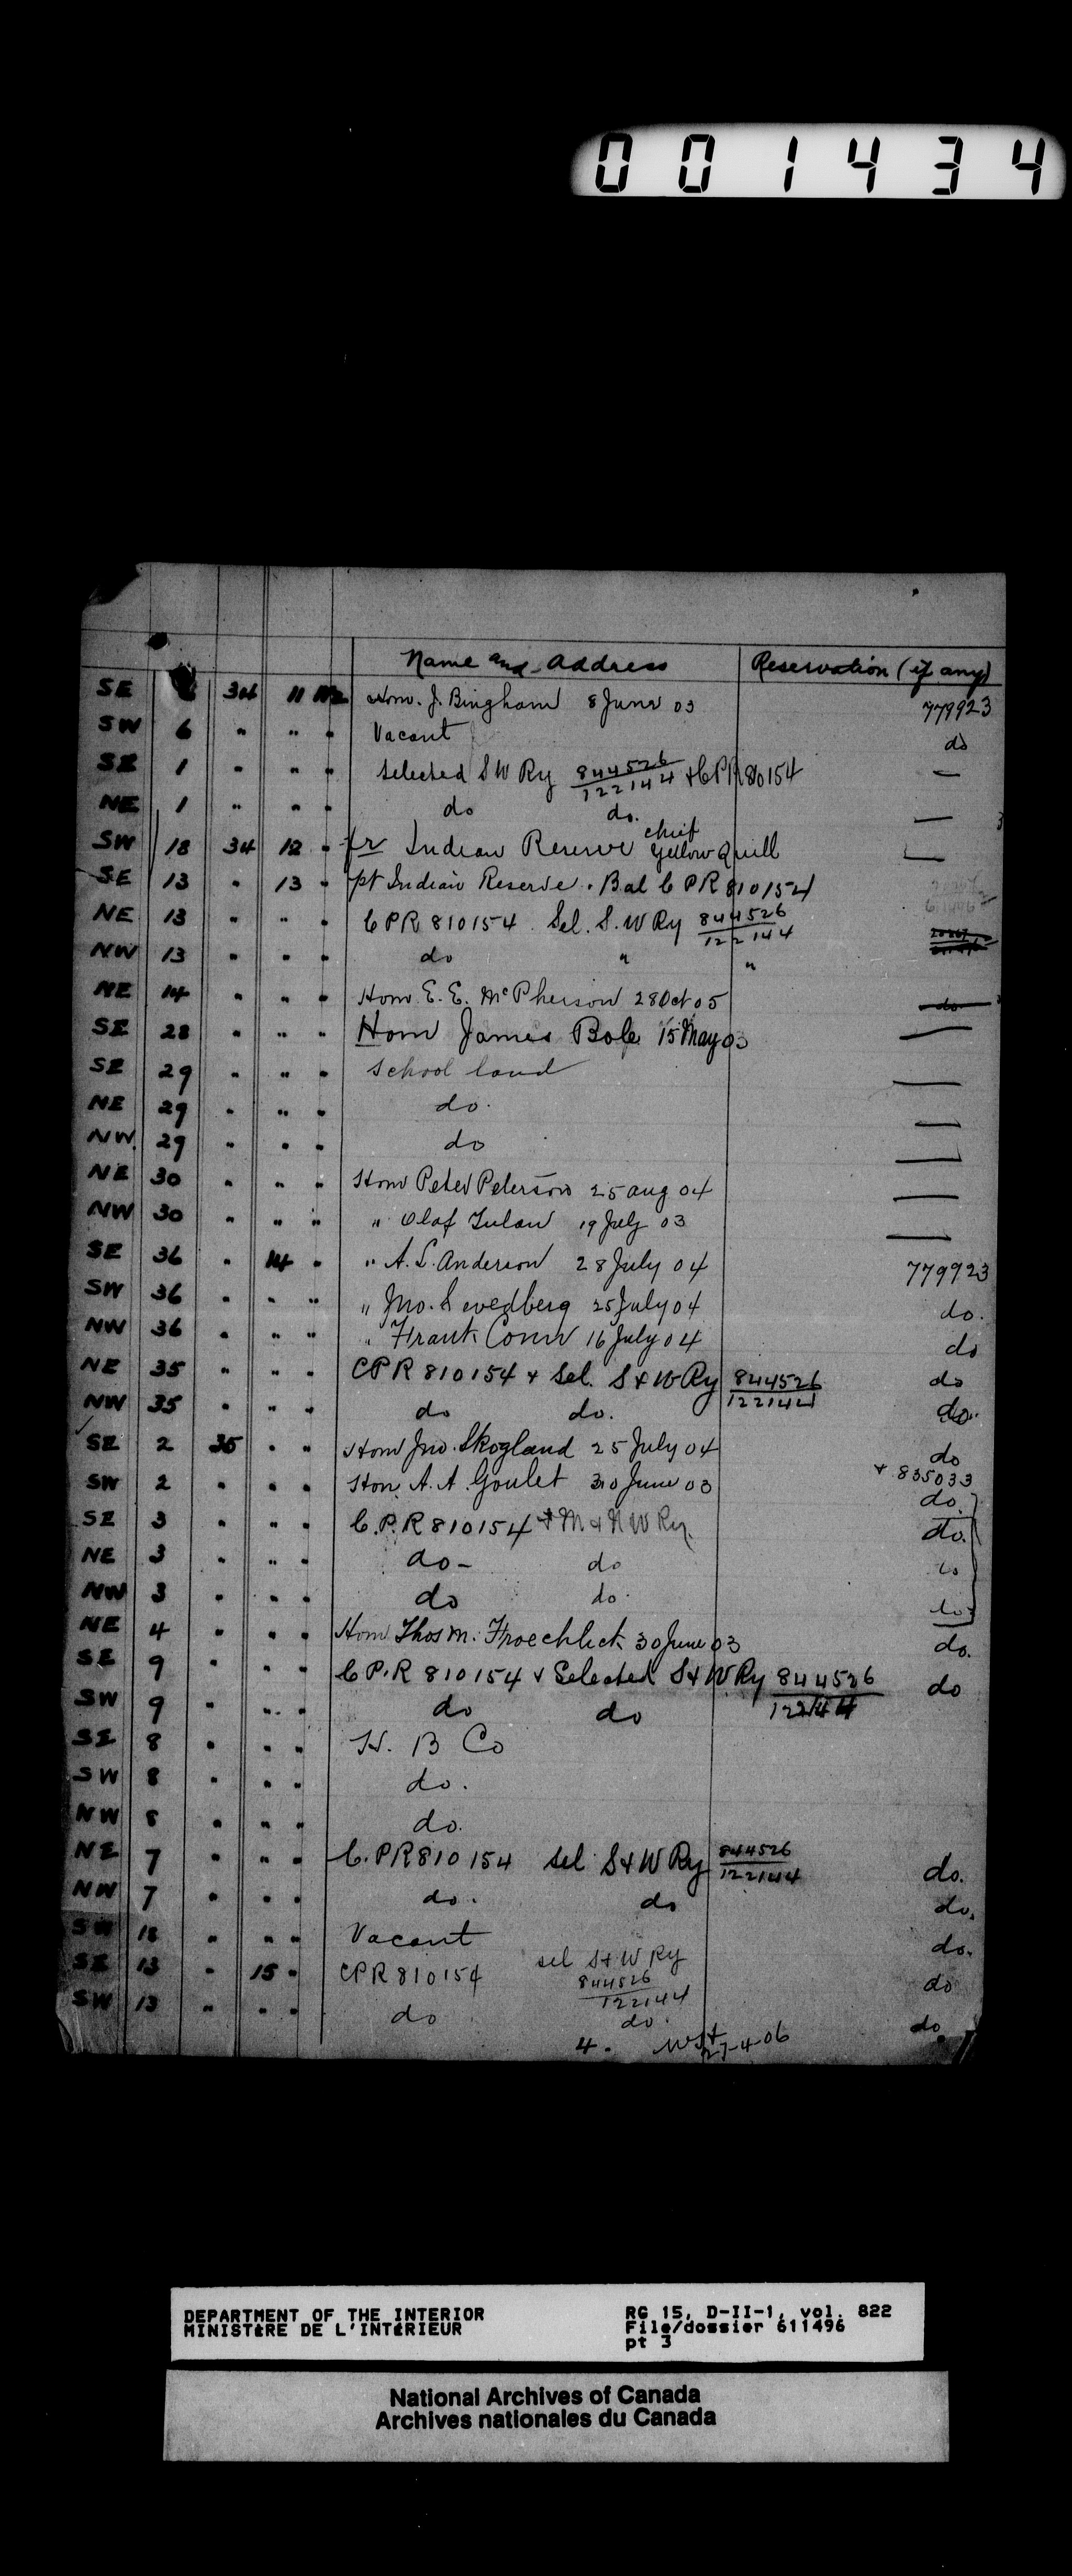 001434
Name and Address Reservation (if any)
SE 34 11 Hom. J. Bingham 8 June 03 779923
SW 6 " " " Vacant do
SE 1 " " " Selected S W Ry 844526/122144 + CPR 810154 —
NE 1 " " " do do. —
SW 18 34 12 " fr Indian Reserve chief Yellow Quill —
SE 13 " 13 " pt Indian Reserve. Bal C P R 810154
NE 13 " " " C P R 810154 Sel. S. W Ry 844526/122144
NW 13 " " " do " "
NE 14 " " " Hom E. E. McPherson 28 Oct 05 do
SE 28 " " " Hom James Bole 15 May 03 —
SE 29 " " " School land —
NE 29 " " " do. —
NW 29 " " " do —
NE 30 " " " Hom Peter Peterson 25 aug 04 —
NW 30 " " " " Olaf 19 July 03 —
SE 36 " 14 " " A. L. Anderson 28 July 04 779923
SW 36 " " " " Jno. Swedberg 25 July 04 do.
NW 36 " " " " Frank 16 July 04 do
NE 35 " " " CPR 810154 + Sel. S & W Ry 844526/122144 do
NW 35 " " " do do. do.
SE 2 35 " " Hom Jno. Skogland 25 July 04 do
+ 835033
SW 2 " " " Hom A. A. Goulet 30 June 03 do.
SE 3 " " " C. P. R 810154 + M & N W Ry. do.
NE 3 " " " do - do do
NW 3 " " " do do. do
NE 4 " " " Hom Thos M. 30 June 03 do.
SE 9 " " " C P. R 810154 + Selected S & W Ry 844526/122144 do
SW 9 " " " do do
SE 8 " " " H. B Co
SW 8 " " " do.
NW 8 " " " do.
NE 7 " " " C. P R 810154 Sel S & W Ry 844526/122144 do.
NW 7 " " " do. do do.
SW 18 " " " Vacant do.
SE 13 " 15 " CPR 810154 sel S & W Ry 844526/122144 do
SW 13 " " " do do. do
4. 27-4-06
DEPARTMENT OF THE INTERIOR RG 15, D-II-1, vol. 822
MINISTèRE DE L'INTéRIEUR File/dossier 611496
pt 3
National Archives of Canada
Archives nationales du Canada